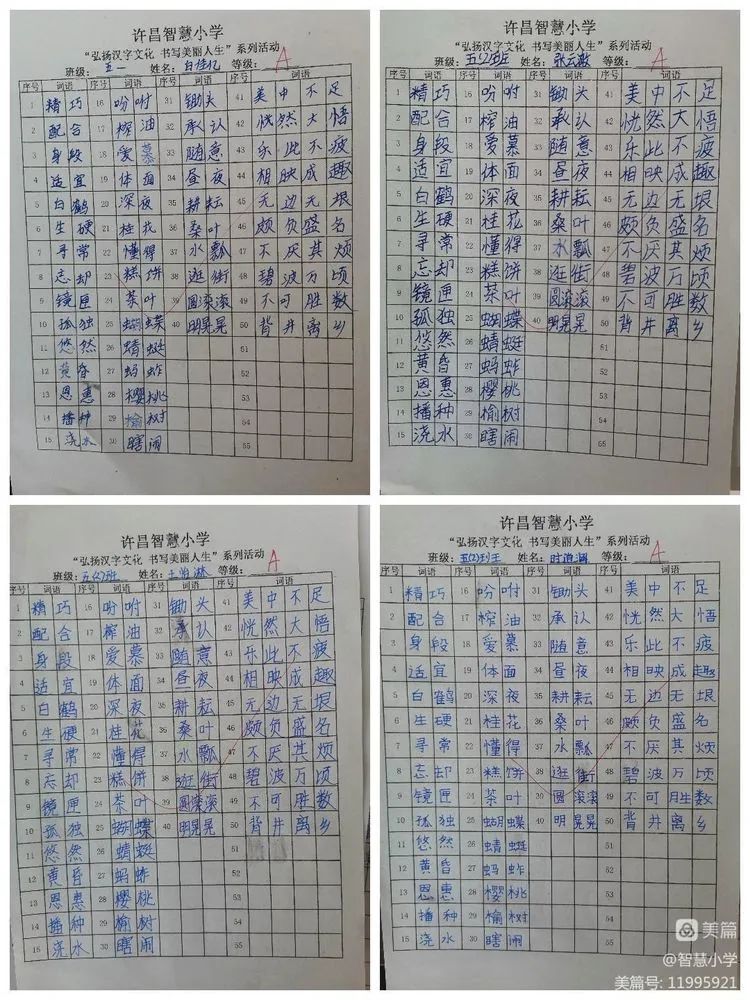 许昌智慧小学
“弘扬汉字文化 书写美丽人生”系列活动
班级: 五一 姓名: 白佳亿 等级: A
序号 词语 序号 词语 序号 词语 序号 词语
1 精巧 16 吩咐 31 锄头 41 美中不足
2 配合 17 榨油 32 承认 42 恍然大悟
3 身段 18 爱慕 33 随意 43 乐此不疲
4 适宜 19 体面 34 昼夜 44 相映成趣
5 白鹤 20 深夜 35 耕耘 45 无边无垠
6 生硬 21 桂花 36 桑叶 46 颇负盛名
7 寻常 22 懂得 37 水瓢 47 不厌其烦
8 忘却 23 糕饼 38 逛街 48 碧波万顷
9 镜匣 24 茶叶 39 圆滚滚 49 不可胜数
10 孤独 25 蝴蝶 40 明晃晃 50 背井离乡
11 悠然 26 蜻蜓 51
12 黄昏 27 蚂蚱 52
13 恩惠 28 樱桃 53
14 播种 29 榆树 54
15 浇水 30 瞎闹 55
许昌智慧小学
“弘扬汉字文化 书写美丽人生”系列活动
班级: 五(2)班 姓名: 张云 等级: A
序号 词语 序号 词语 序号 词语 序号 词语
1 精巧 16 吩咐 31 锄头 41 美中不足
2 配合 17 榨油 32 承认 42 恍然大悟
3 身段 18 爱慕 33 随意 43 乐此不疲
4 适宜 19 体面 34 昼夜 44 相映成趣
5 白鹤 20 深夜 35 耕耘 45 无边无垠
6 生硬 21 桂花 36 桑叶 46 颇负盛名
7 寻常 22 懂得 37 水瓢 47 不厌其烦
8 忘却 23 糕饼 38 逛街 48 碧波万顷
9 镜匣 24 茶叶 39 圆滚滚 49 不可胜数
10 孤独 25 蝴蝶 40 明晃晃 50 背井离乡
11 悠然 26 蜻蜓 51
12 黄昏 27 蚂蚱 52
13 恩惠 28 樱桃 53
14 播种 29 榆树 54
15 浇水 30 瞎闹 55
许昌智慧小学
“弘扬汉字文化 书写美丽人生”系列活动
班级: 五(2)班 姓名: 等级: A
序号 词语 序号 词语 序号 词语 序号 词语
1 精巧 16 吩咐 31 锄头 41 美中不足
2 配合 17 榨油 32 承认 42 恍然大悟
3 身段 18 爱慕 33 随意 43 乐此不疲
4 适宜 19 体面 34 昼夜 44 相映成趣
5 白鹤 20 深夜 35 耕耘 45 无边无垠
6 生硬 21 桂花 36 桑叶 46 颇负盛名
7 寻常 22 懂得 37 水瓢 47 不厌其烦
8 忘却 23 糕饼 38 逛街 48 碧波万顷
9 镜匣 24 茶叶 39 圆滚滚 49 不可胜数
10 孤独 25 蝴蝶 40 明晃晃 50 背井离乡
11 悠然 26 蜻蜓 51
12 黄昏 27 蚂蚱 52
13 恩惠 28 樱桃 53
14 播种 29 榆树 54
15 浇水 30 瞎闹 55
许昌智慧小学
“弘扬汉字文化 书写美丽人生”系列活动
班级: 五(2)班 姓名: 等级: A
序号 词语 序号 词语 序号 词语 序号 词语
1 精巧 16 吩咐 31 锄头 41 美中不足
2 配合 17 榨油 32 承认 42 恍然大悟
3 身段 18 爱慕 33 随意 43 乐此不疲
4 适宜 19 体面 34 昼夜 44 相映成趣
5 白鹤 20 深夜 35 耕耘 45 无边无垠
6 生硬 21 桂花 36 桑叶 46 颇负盛名
7 寻常 22 懂得 37 水瓢 47 不厌其烦
8 忘却 23 糕饼 38 逛街 48 碧波万顷
9 镜匣 24 茶叶 39 圆滚滚 49 不可胜数
10 孤独 25 蝴蝶 40 明晃晃 50 背井离乡
11 悠然 26 蜻蜓 51
12 黄昏 27 蚂蚱 52
13 恩惠 28 樱桃 53
14 播种 29 榆树
15 浇水 30 瞎闹 55
美篇
@智慧小学
美篇号: 11995921